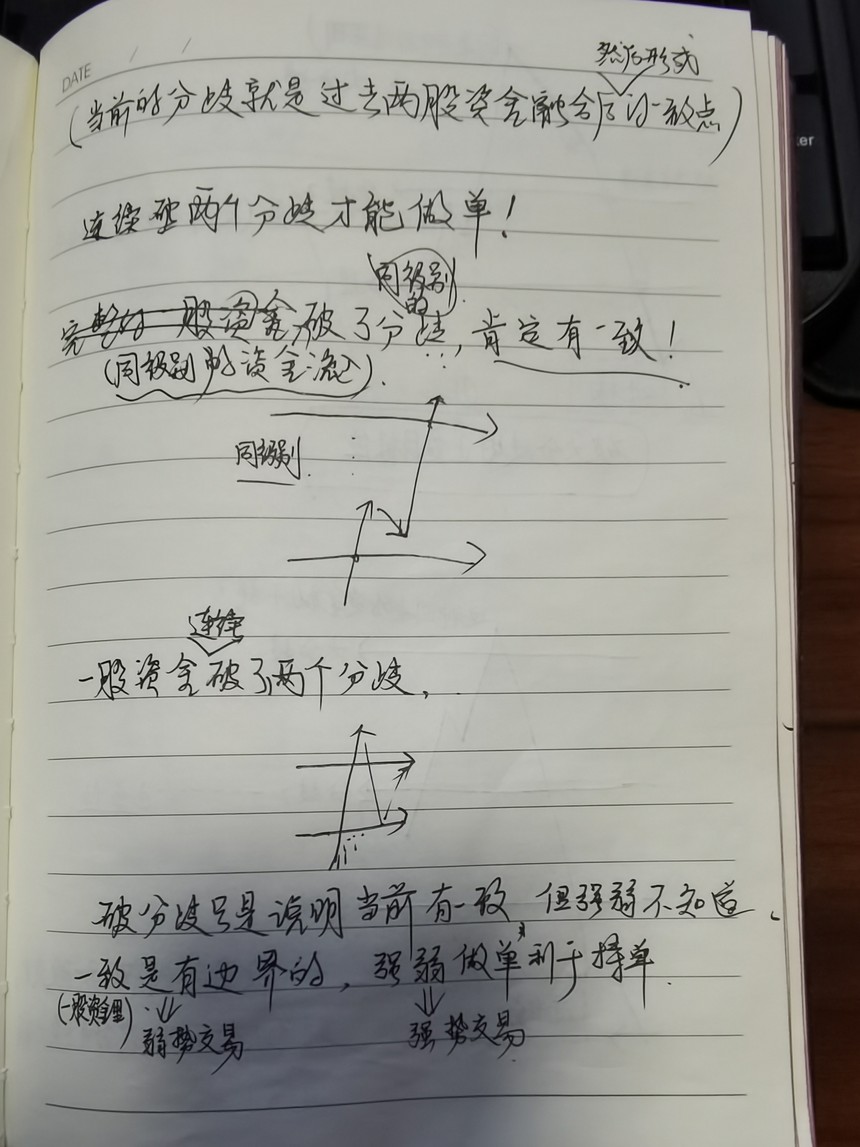 DATE / /
然后形式
(当前的分歧就是过去两股资金融合后的一致点)
连续破两个分歧才能做单!
同级别的
完整的一股资金破了分歧,肯定有一致!
(同级别的资金流).
同级别.
连续
一股资金破了两个分歧,
破分歧只是说明当前有一致,但强弱不知道、
一致是有边界的,强弱做单利于择单.
(一股资金里) 弱势交易 强势交易